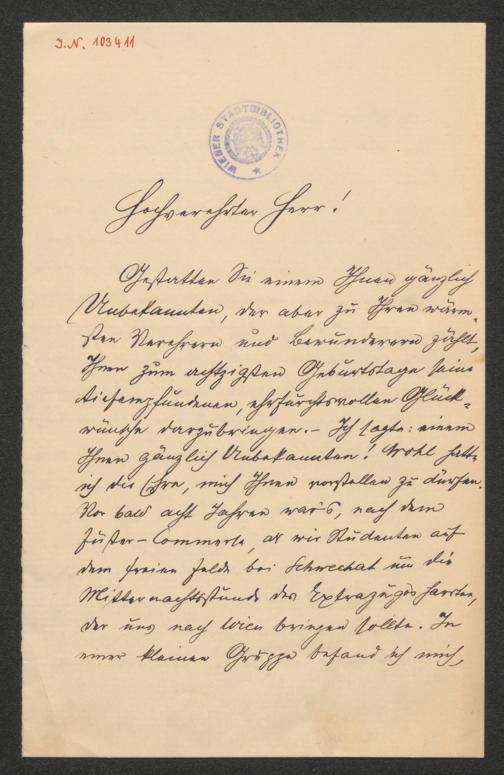 J.N. 103411
WIENER STADTBIBLIOTHEK
Hochverehrter Herr!
Gestatten Sie einem Ihnen gänzlich
Unbekannten, der aber zu Ihren wärm-
sten Verehrern und Bewunderern zählt,
Ihnen zum achtzigsten Geburtstage seine
tiefempfundenen, ehrfurchtsvollen Glück-
wünsche darzubringen. – Ich sagte: einem
Ihnen gänzlich Unbekannten! Wohl hatte
ich die Ehre, mich Ihnen vorstellen zu dürfen.
Vor bald acht Jahren war's, nach dem
Füster-Commerse, als wir Studenten auf
dem freien Felde bei Schwechat um die
Mitternachtsstunde des Extrazuges harrten,
der uns nach Wien bringen sollte. In
einer kleinen Gruppe befand ich mich,